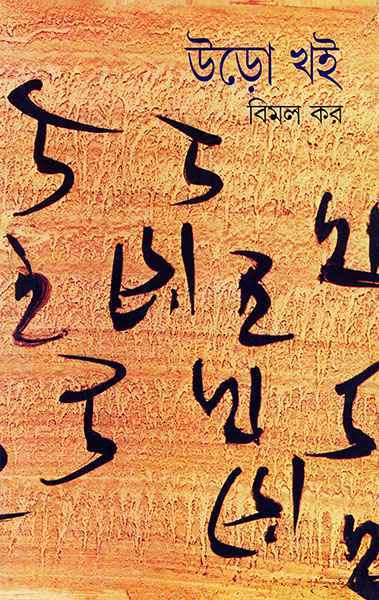 উড়ো খই
বিমল কর
উ উ
ই ড়ো ই খ
উ খ উ
ড়ো খ